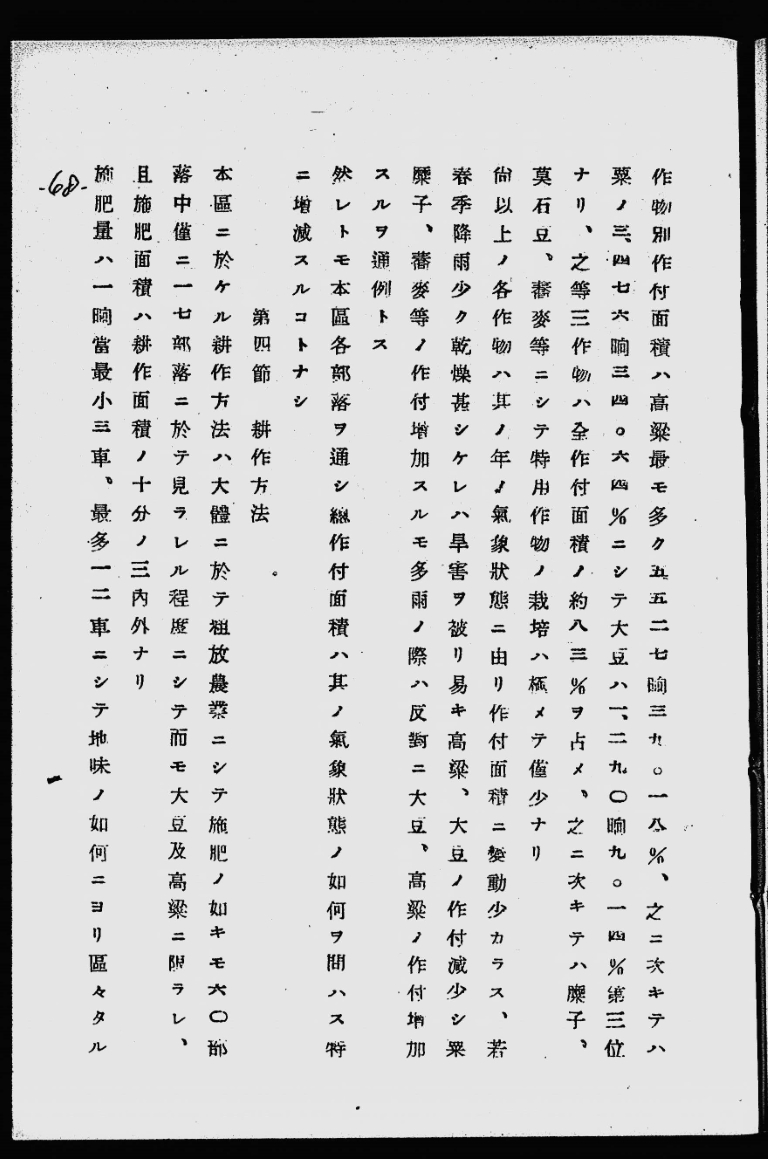 作物別作付面積ハ高粱最モ多ク五五二七晌三九。一八%、之ニ次キテハ
粟ノ三、四七六晌三四。六四%ニシテ大豆ハ一、二九〇晌九。一四%第三位
ナリ、之等三作物ハ全作付面積ノ約八三%ヲ占メ、之ニ次キテハ糜子、
莫石豆、蕎麥等ニシテ特用作物ノ栽培ハ極メテ僅少ナリ
尙以上ノ各作物ハ其ノ年ノ氣象狀態ニ由リ作付面積ニ變動少カラス、若
春季降雨少ク乾燥甚シケレハ旱害ヲ被リ易キ高粱、大豆ノ作付減少シ粟
糜子、蕎麥等ノ作付增加スルモ多雨ノ際ハ反對ニ大豆、高粱ノ作付增加
スルヲ通例トス
然レトモ本區各部落ヲ通シ總作付面積ハ其ノ氣象狀態ノ如何ヲ問ハス特
ニ增減スルコトナシ
第四節 耕作方法
本區ニ於ケル耕作方法ハ大體ニ於テ粗放農業ニシテ施肥ノ如キモ六〇部
落中僅ニ一七部落ニ於テ見ラレル程度ニシテ而モ大豆及高粱ニ限ラレ、
且施肥面積ハ耕作面積ノ十分ノ三內外ナリ
施肥量ハ一晌當最小三車、最多一二車ニシテ地味ノ如何ニヨリ區々タル
-68-